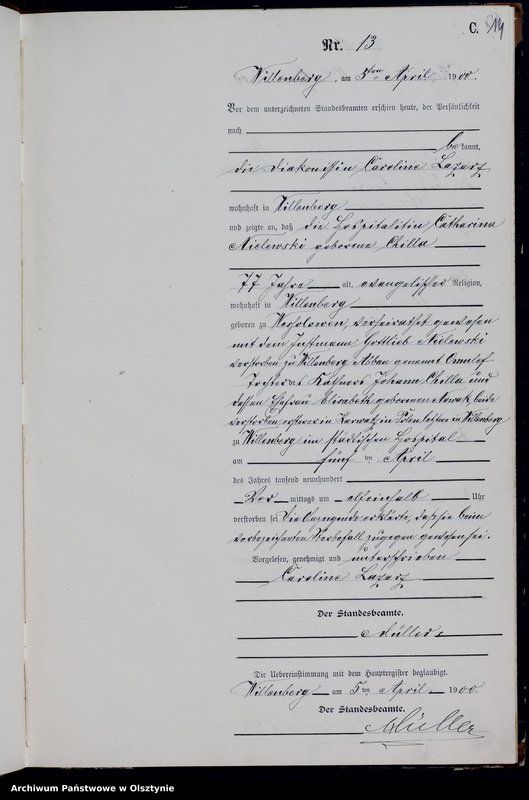 C. 14
Nr. 13
Willenberg, am 5ten April 1900.
Vor dem unterzeichneten Standesbeamten erschien heute, der Persönlichkeit
nach
bekannt,
die Diakonissin Caroline Lazarz
wohnhaft in Willenberg
und zeigte an, daß die Hospitalitin Catharina
Nielewski geborene Chilla
77 Jahre alt, evangelischer Religion,
wohnhaft in Willenberg
geboren zu verheirathet gewesen
mit dem Instmann Gottlieb Nielewski
verstorben zu Willenberg Abbau genannt
Tochter des Käthners Johann Chilla und
dessen Ehefrau Elisabeth geborenen Nowak, beide
verstorben ersterer in in Polen letztere in Willenberg
zu Willenberg im städtischen Hospital
am fünf ten April
des Jahres tausend neunhundert
Vor mittags um elfeinhalb Uhr
verstorben sei. Die Anzeigende erklärte, daß sie beim
vorbezeichneten Sterbefall zugegen gewesen sei.
Vorgelesen, genehmigt und unterschrieben
Caroline Lazarz
Der Standesbeamte.
Müller
Die Uebereinstimmung mit dem Hauptregister beglaubigt.
Willenberg am 5ten April 1900.
Der Standesbeamte.
Müller
Archiwum Państwowe w Olsztynie